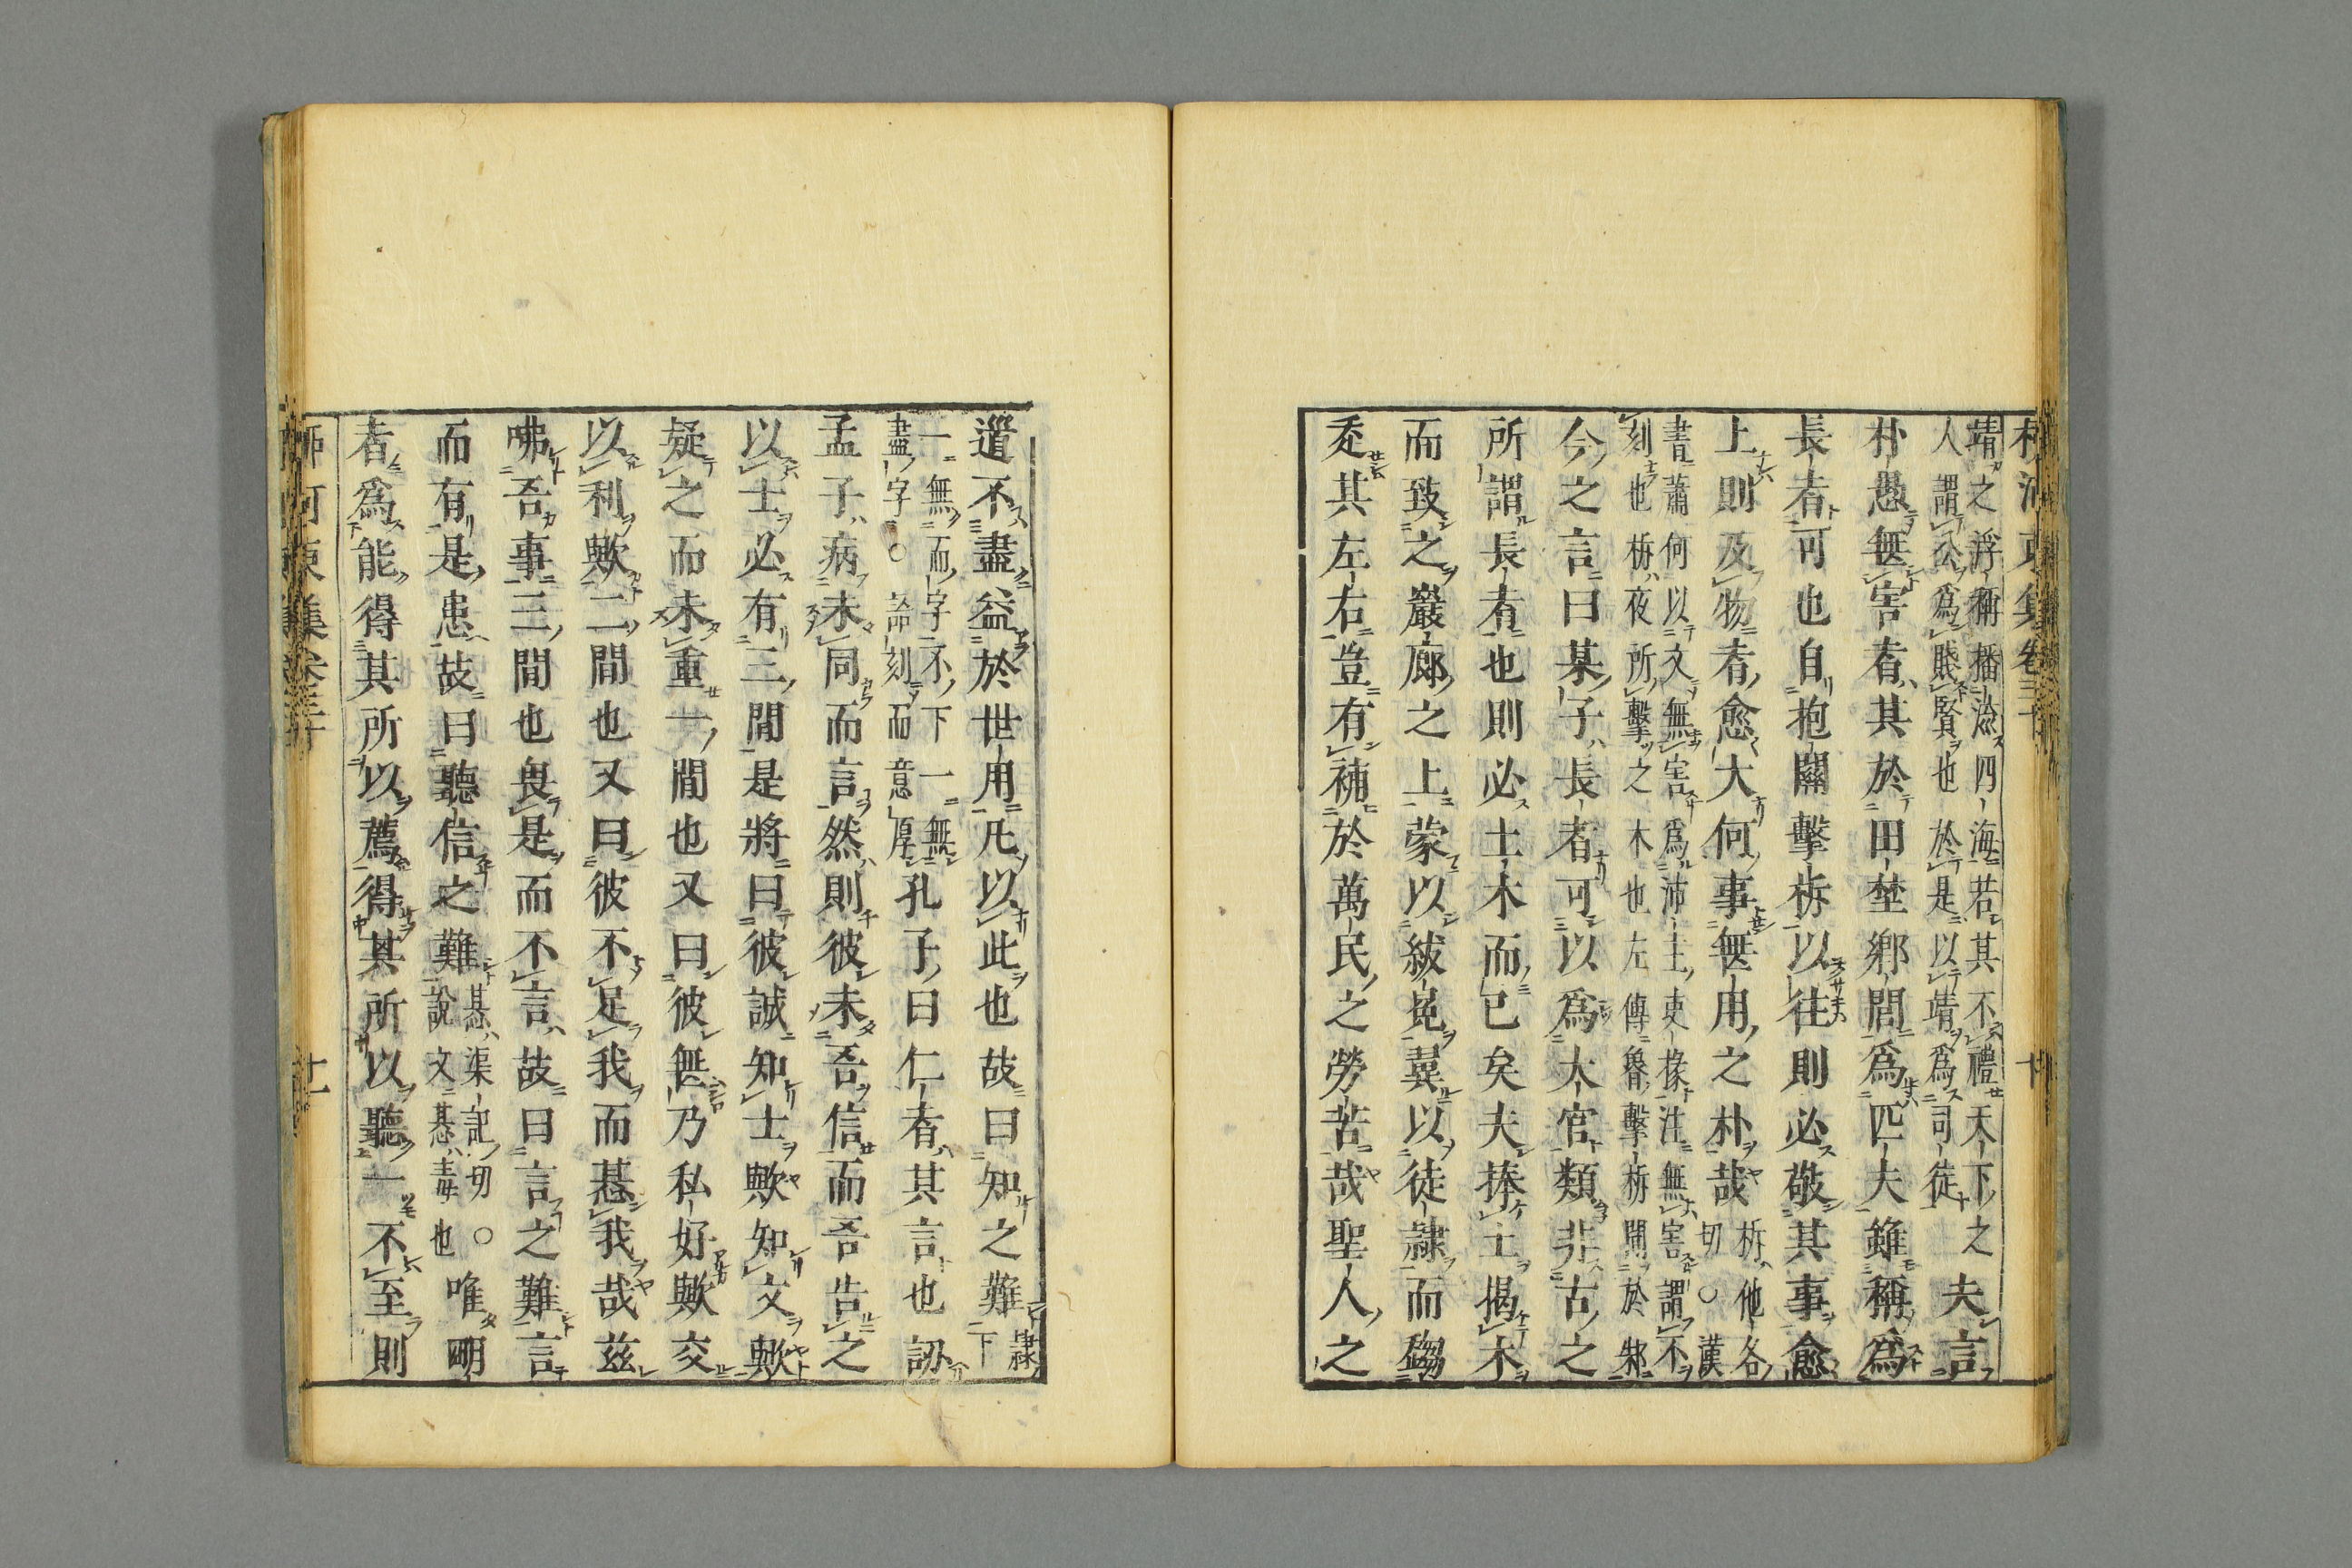 柳河東集卷三十 十
靖之浮稱播澨四海若其不禮天下之
人謂公爲賤賢也於是以靖爲司徒
夫言
朴愚無害者其於田埜鄉閭爲匹夫雖稱爲
長者可也自抱關擊柝以往則必敬其事愈
上則及物者愈大何事無用之朴哉
柝他各
切○漢
書蕭何以文無害爲沛主吏掾注無害謂不
刻也柝夜所擊之木也左傳魯擊柝聞於邾
今之言曰某子長者可以爲大官類非古之
所謂長者也則必土木而已矣夫捧土揭木
而致之巖廊之上蒙以紱冕翼以徒隷而趨
走其左右豈有補於萬民之勞苦哉聖人之
道不盡益於世用凡以此也故曰知之難
隷
下
一無而字不下一無
盡字○論刻而意厚
孔子曰仁者其言也訒
孟子病未同而言然則彼未吾信而吾告之
以士必有三間是將曰彼誠知士歟知文歟
疑之而未重一間也又曰彼無乃私好歟交
以利歟二間也又曰彼不足我而惎我哉茲
咈吾事三間也畏是而不言故曰言之難言
而有是患故曰聽信之難
惎渠記切○
說文惎毒也
唯明
者爲能得其所以薦得其所以聽一不至則
柳河東集卷三十 十一